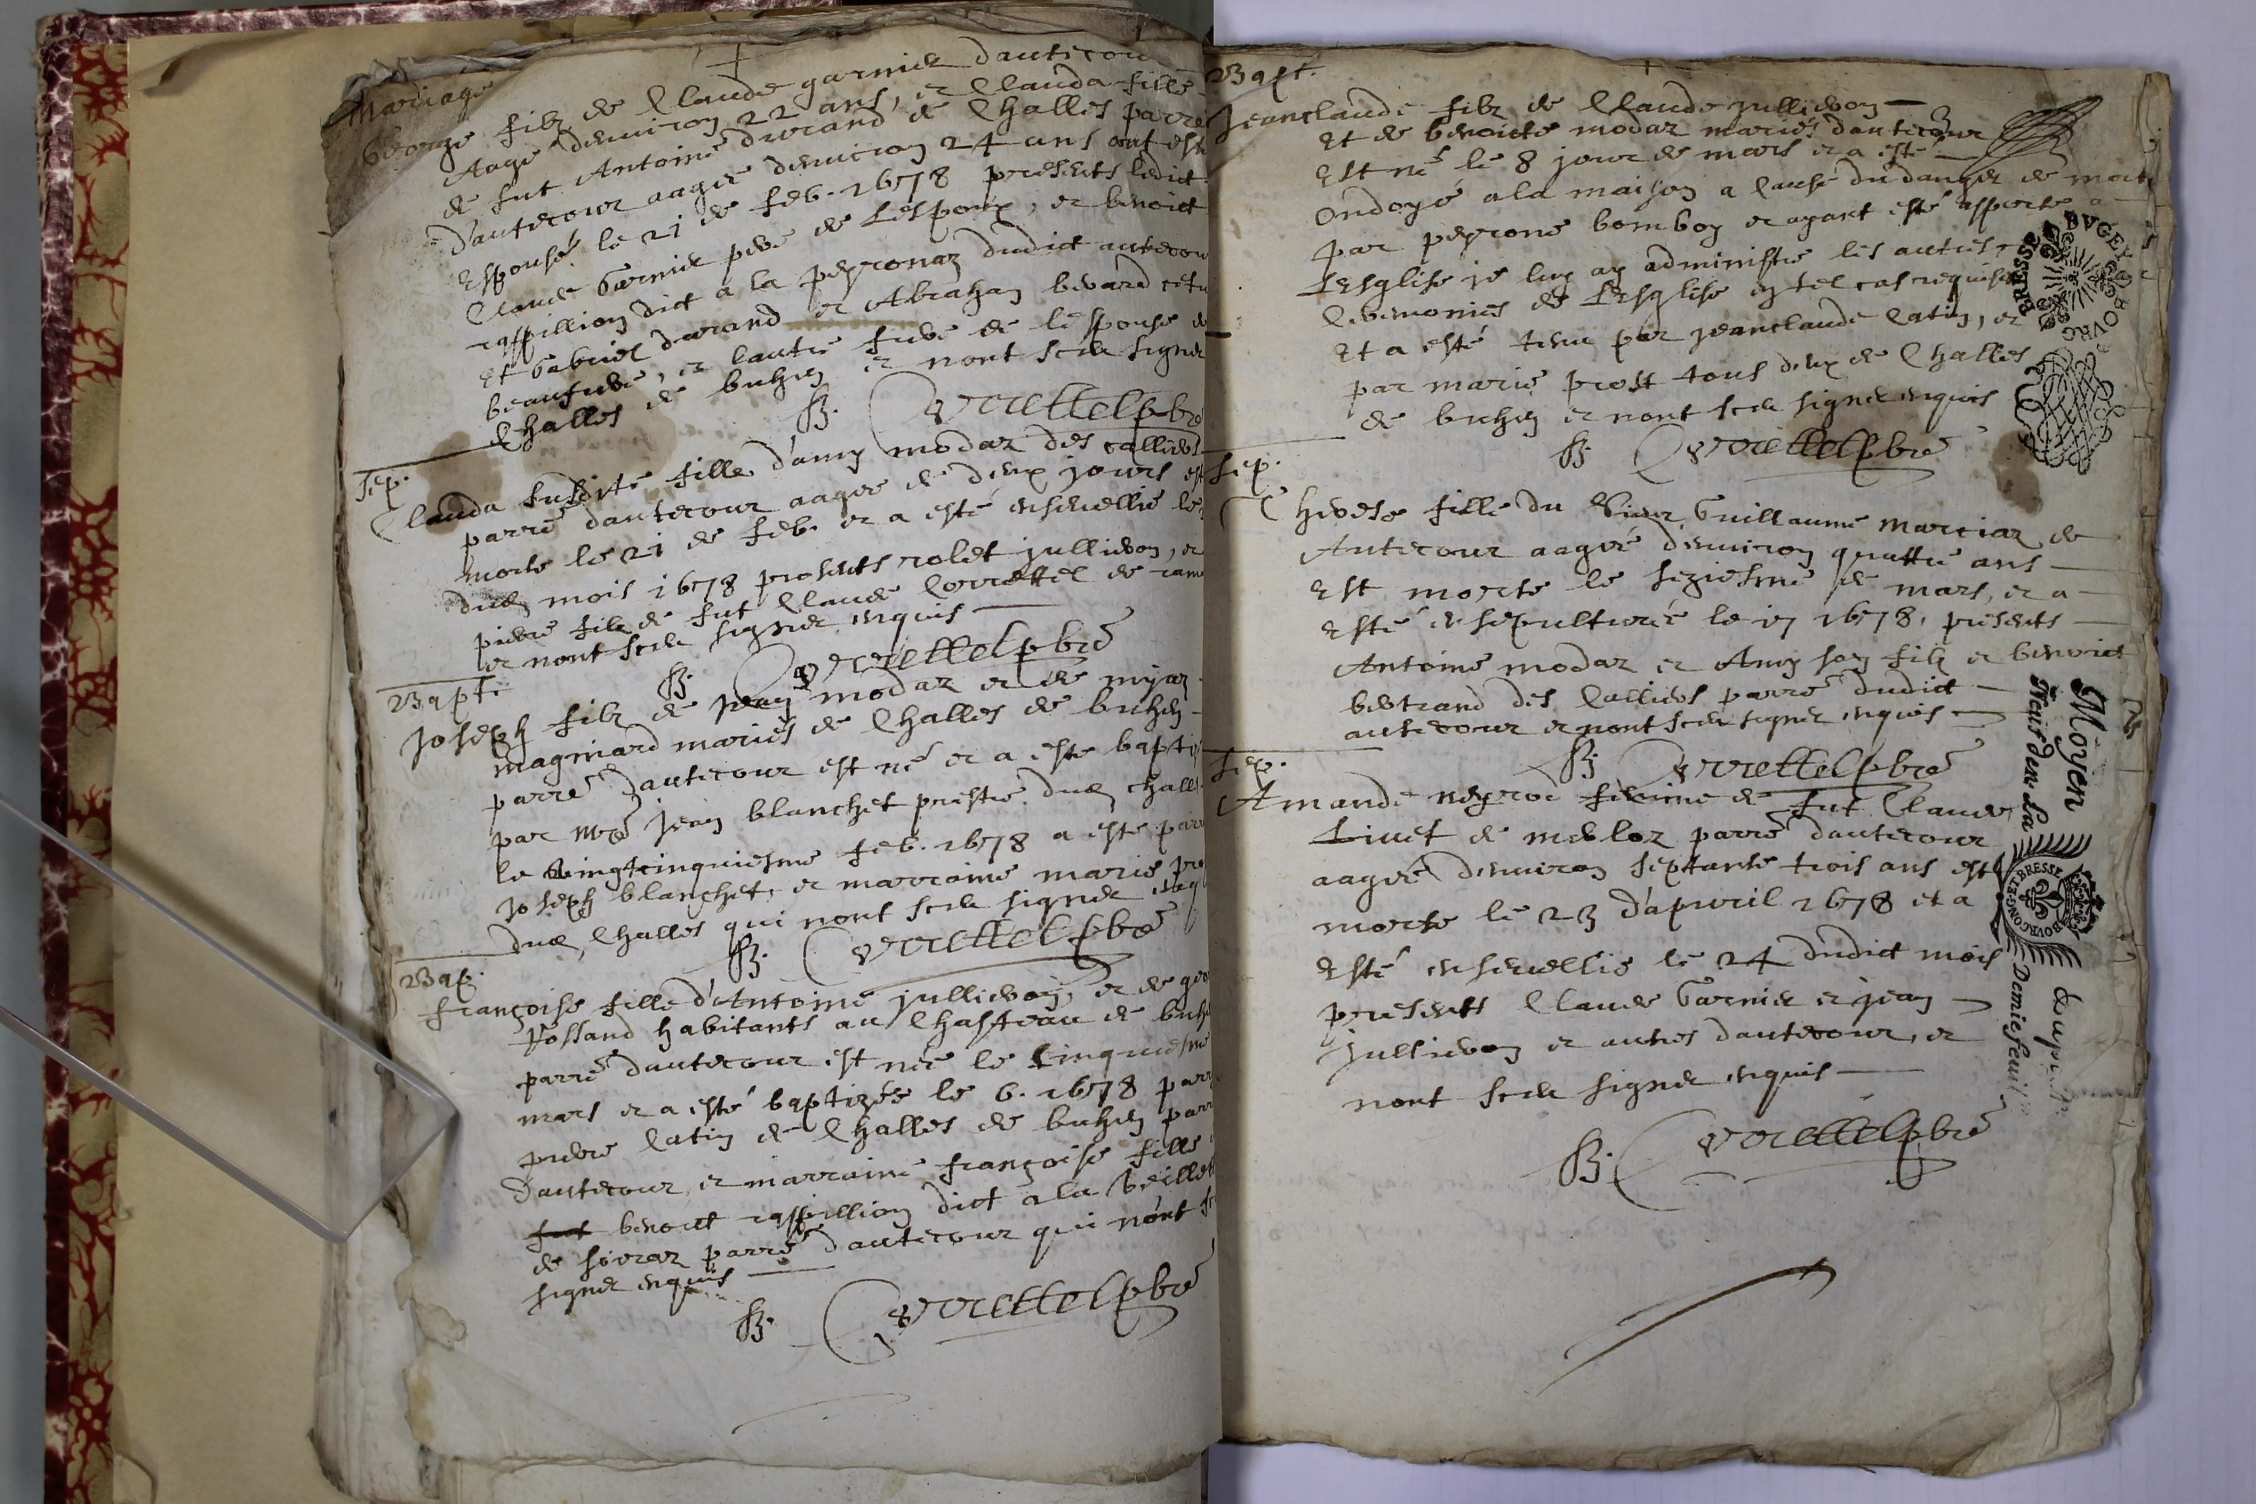 Mariage
George filz de Claude garnier dautecour
Aagé denuiron 22 ans, et Clauda fille
de fut Antoine durand de Challes parre
d'autecour aagée denuiron 24 ans ont esté
Espousé le 21 de feb. 1678 presents ledict
Claude Garnier pere de Lespoux, et benoict
raffillion dict a la peyronaz dudict autecour
Et Gabriel durand et Abraham
beaufrere, et lautre frere de lespouse de
Challes de buhen et nont sceu signer
B. Correttel pbre
Sep.
Clauda fille d'amy modaz des calliers
parre dautecour aagée de deux jours est
morte le 21 de feb. et a esté enseuellie le
dud. mois 1678 presents rolet jullieron, et
pierre filz de fut Claude Correttel de
et nont sceu signer enquis
B. Correttel pbre
Bapt.
Joseph filz de Jean modaz et de myaz
magniard mariés de Challes de buhen
parre dautecour est né et a esté baptisé
par mre Jean blanchet prestre dud. challes
le vingtcinquiesme feb. 1678 a esté parrain
Joseph blanchet, et marraine marie
dud. Challes qui nont sceu signer enquis
B. Correttel pbre
Bap.
françoise fille d'Antoine jullieron, et de
Possand habitants au Chasteau de buhen
parre dautecour est née le cinquiesme
mars et a esté baptizée le 6. 1678 parrain
pierre Catin de Challes de buhen parre
dautecour, et marraine françoise fille
benoict raffillion dict a la
de parre dautecour qui nont sceu
signer enquis
B. Correttel pbre
Bapt.
Jeanclaude filz de Claude jullieron
Et de benoicte modaz mariés dautecour
Est né le 8 jour de mars et a esté
Ondoyé a la maison a cause du danger de mort
par peyrone bomboy et ayant esté apporté a
Lesglise je luy ay administré les autres
Ceremonies de Lesglise en tel cas requises
Et a esté tenu par jeanclaude Catin, et
par marie prost tous deux de Challes
de buhen et nont sceu signer enquis
B. Correttel pbre
Sep.
fille du Sieur Guillaume marciaz de
Autecour aagée denuiron quattre ans
Est morte le seziesme de mars, et a
Esté ensepulturée le 17 1678, presents
Antoine modaz et Amy son filz et benoict
bertrand des Calliers parre dudict
autecour et nont sceu signer enquis
B. Correttel pbre
Sep.
Amande neyroc femme de fut Claude
Liuet de merloz parre dautecour
aagée denuiron septante trois ans est
morte le 23 d'apuril 1678 et a
Esté enseuellie le 24 dudict mois
presents Claude Garnier et jean
jullieron et autres dautecour, et
nont sceu signer enquis
B. Correttel pbre
BRESSE BVGEY BOVRG
Moyen
BOVRGONG ET BRESSE
Demie feuil